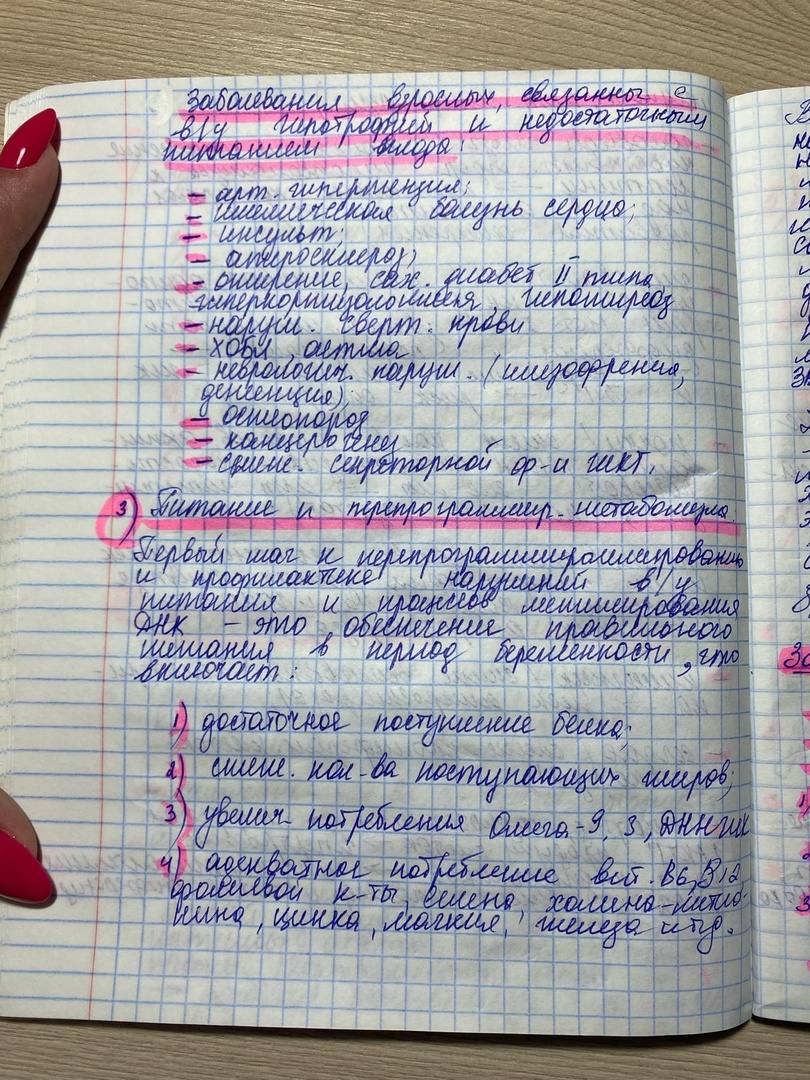 Заболевания взрослых, связанны с
в/у гипотрофией и недостаточным
питанием плода:
- арт. гипертензия;
- ишемическая болезнь сердца;
- инсульт;
- атеросклероз;
- ожирение, сах. диабет II типа
гиперкортизолемия, гипотиреоз
- наруш. сверт. крови
- ХОБЛ, астма
- неврологич. наруш. (шизофрения,
деменция);
- остеопороз
- канцерогены
- сниж. секреторной ф-и ЖКТ.
3) Питание и перепрограммир. метаболизма.
Первый шаг к перепрограммированию
и профилактике нарушений в/у
питания и процессов метилирования
ДНК – это обеспечение правильного
питания в период беременности, что
включает:
1) достаточное поступление белка;
2) сниж. кол-ва поступающих жиров;
3) увелич. потребления Омега-9, 3, ДННЖК
4) адекватное потребление вит. В6, В12
фолиевой к-ты, селена, холина-метио-
нина, цинка, магния, железа и т.д.